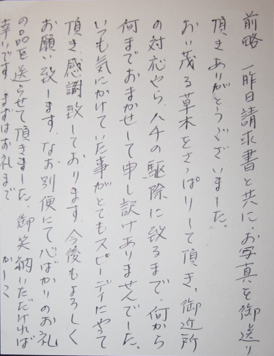 前略 一昨日請求書と共に、お写真を御送り
頂きありがとうございました。
おい茂る草木をさっぱりして頂き、御近所
の対応やら、ハチの駆除に致るまで、何から
何までおまかせして申し訳ありませんでした。
いつも気にかけていた事がとてもスピーディにやって
頂き感謝致しております。今後もよろしく
お願い致します。なお別便にて心ばかりのお礼
の品を送らせて頂きました。御笑納いただければ
幸いです。まずはお礼まで。かしこ